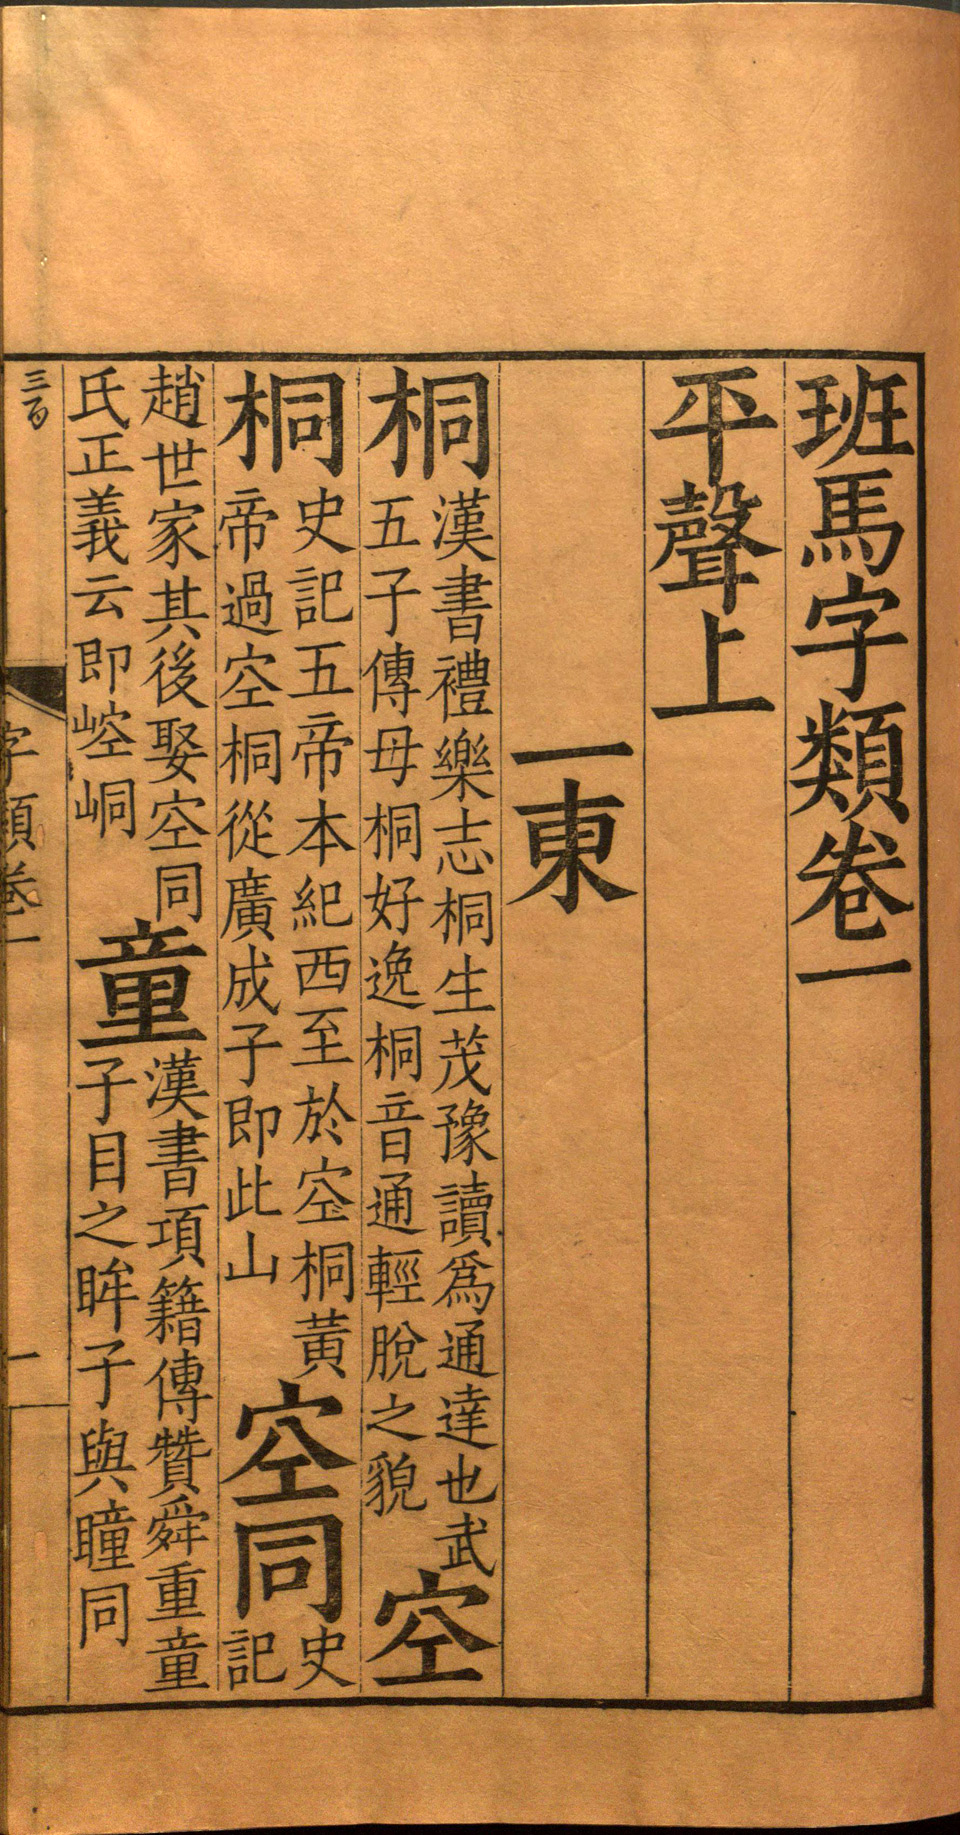 班馬字類卷一
平聲上
一東
桐漢書禮樂志桐生茂豫讀爲通達也武五子傳毋桐好逸桐音通輕脫之貌空
桐史記五帝本紀西至於空桐黃帝過空桐從廣成子即此山空同史記
趙世家其後娶空同氏正義云即崆峒童漢書項籍傳贊舜重童子目之眸子與瞳同
三百
字類卷一
一